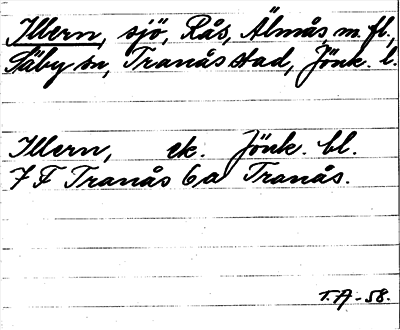 Illern, sjö, Rås, Älmås, m. fl.,
Säby sn, Tranås stad, Jönk. l.
Illern, ek. Jönk. bl.
7 F Tranås 6,a Tranås.
T.A-58.